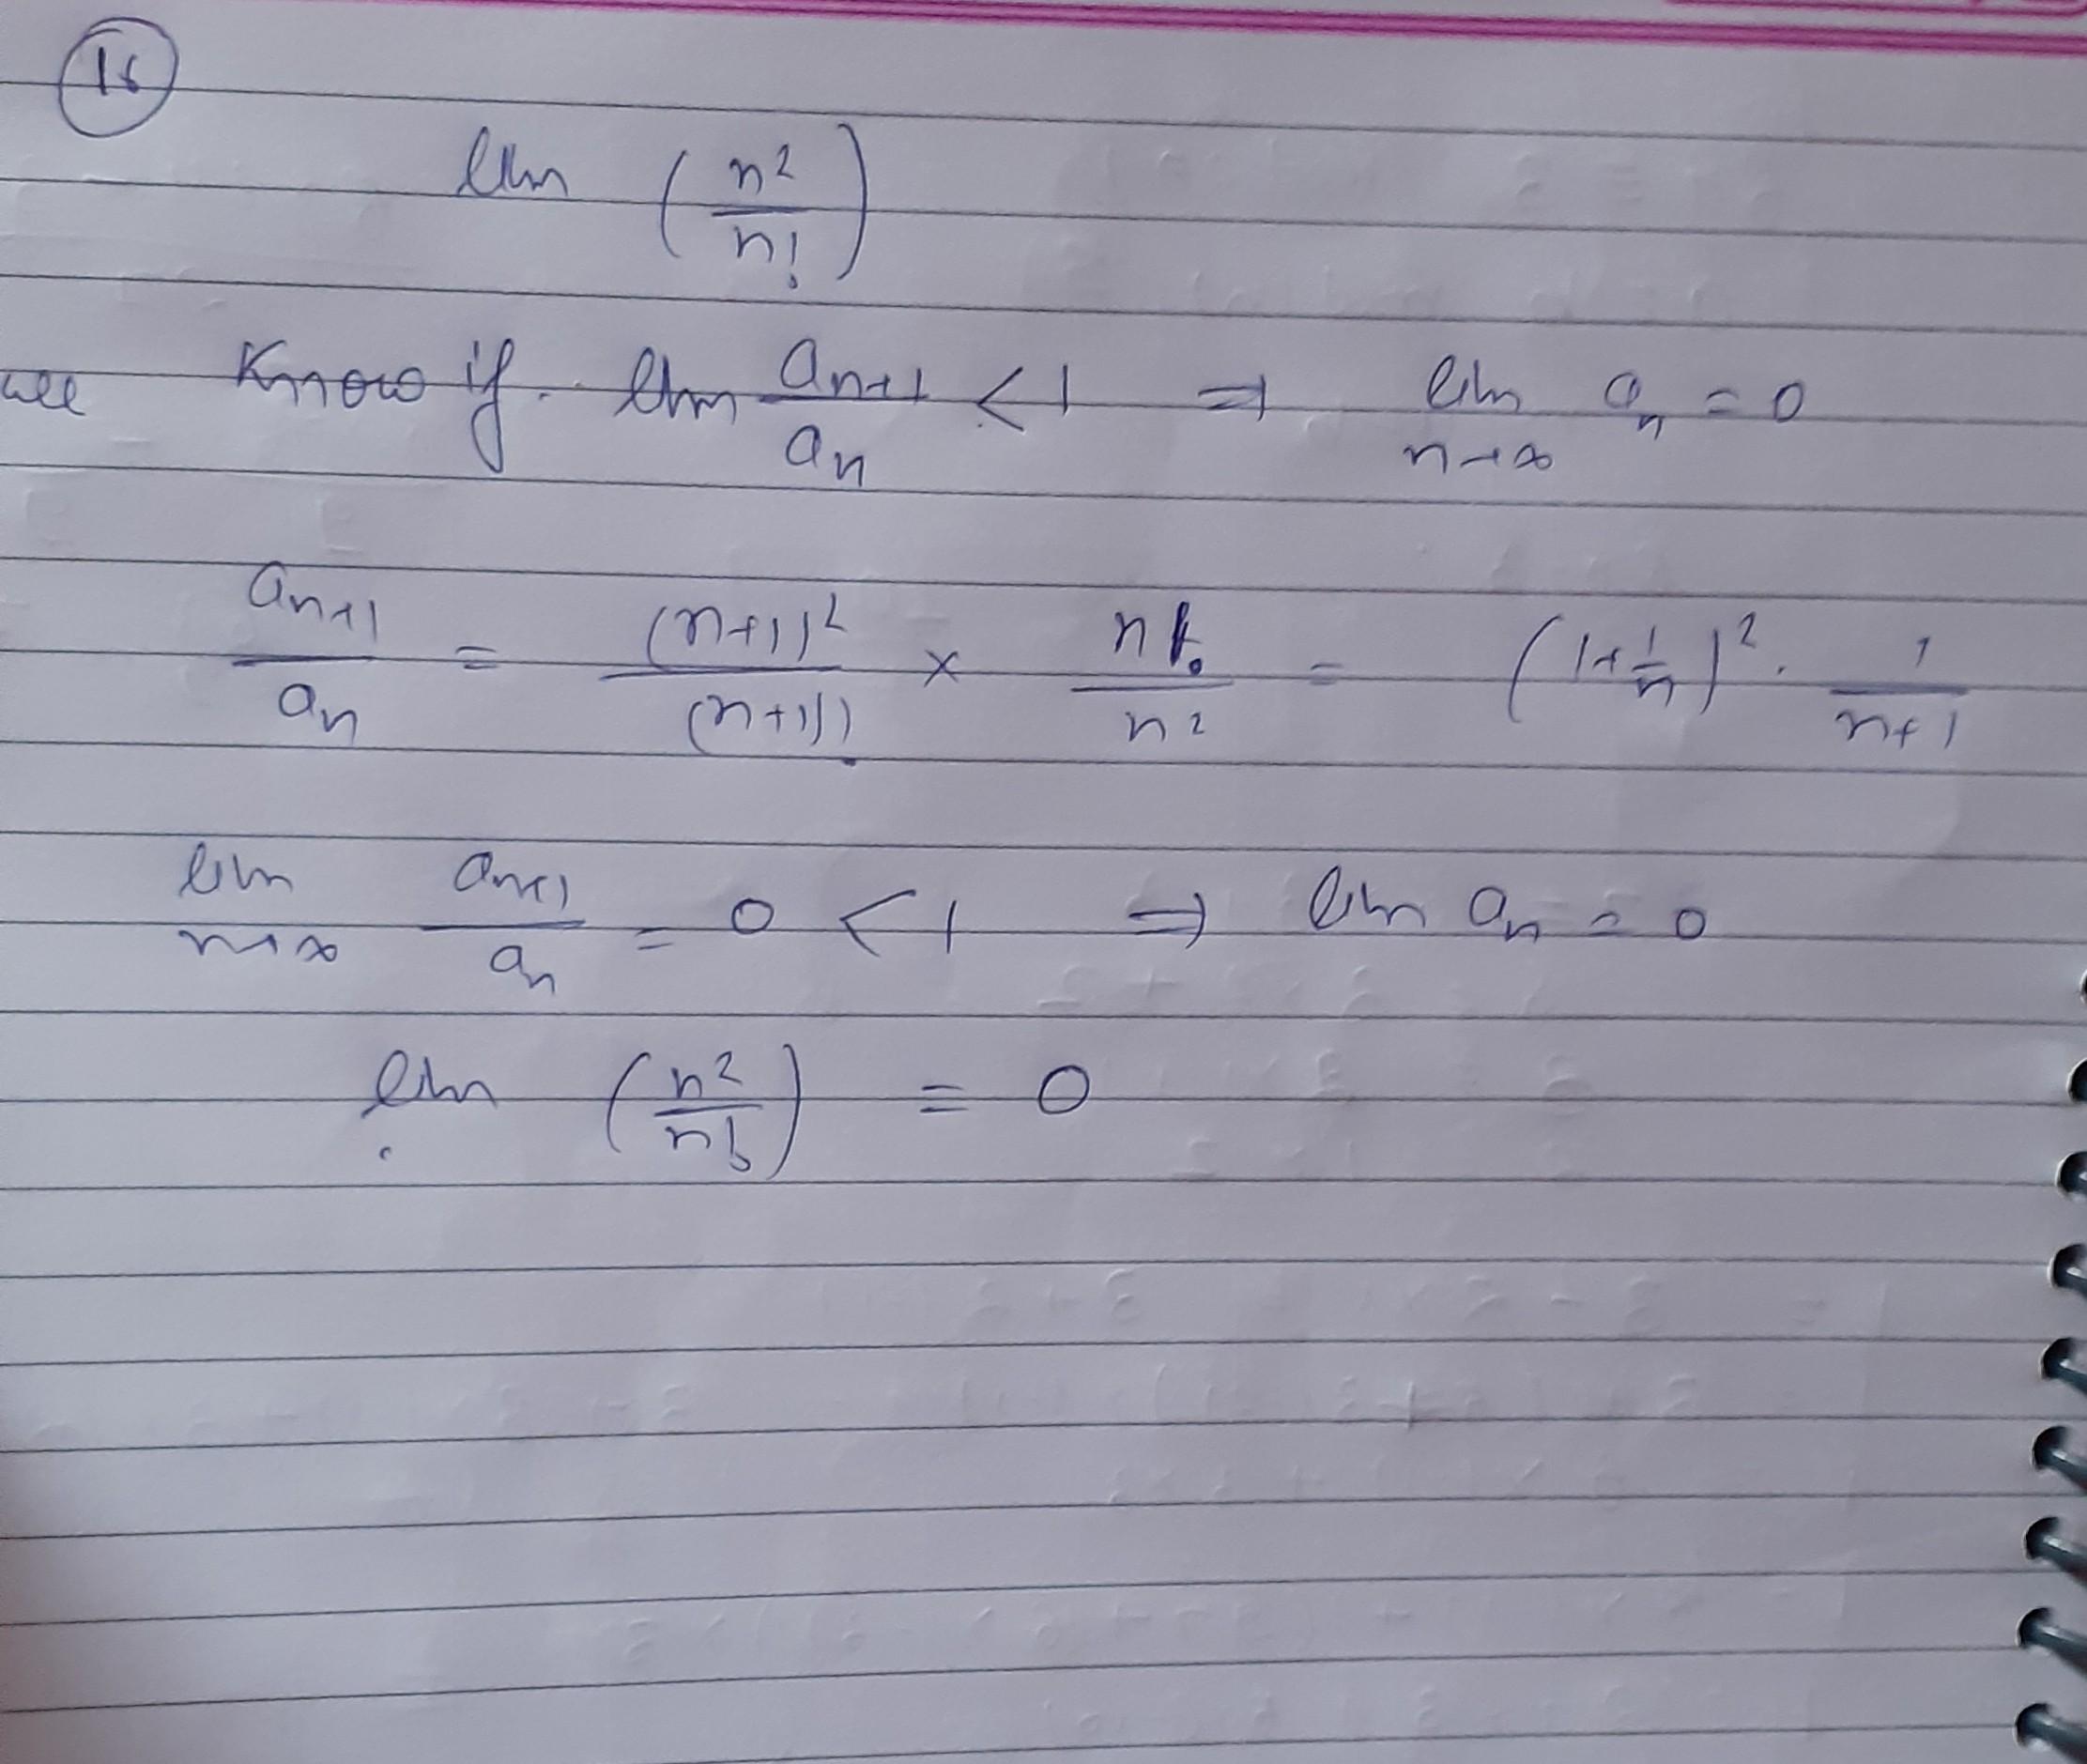 16
lim (n²/n!)
we know if lim aₙ₊₁/aₙ < 1 ⇒ lim n→∞ aₙ = 0
aₙ₊₁/aₙ = (n+1)²/(n+1)! × n!/n² = (1+1/n)² · 1/n+1
lim n→∞ aₙ₊₁/aₙ = 0 < 1 ⇒ lim aₙ = 0
lim (n²/n!) = 0